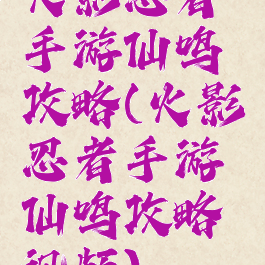 火影忍者
手游仙鸣
攻略(火影
忍者手游
仙鸣攻略
视频)